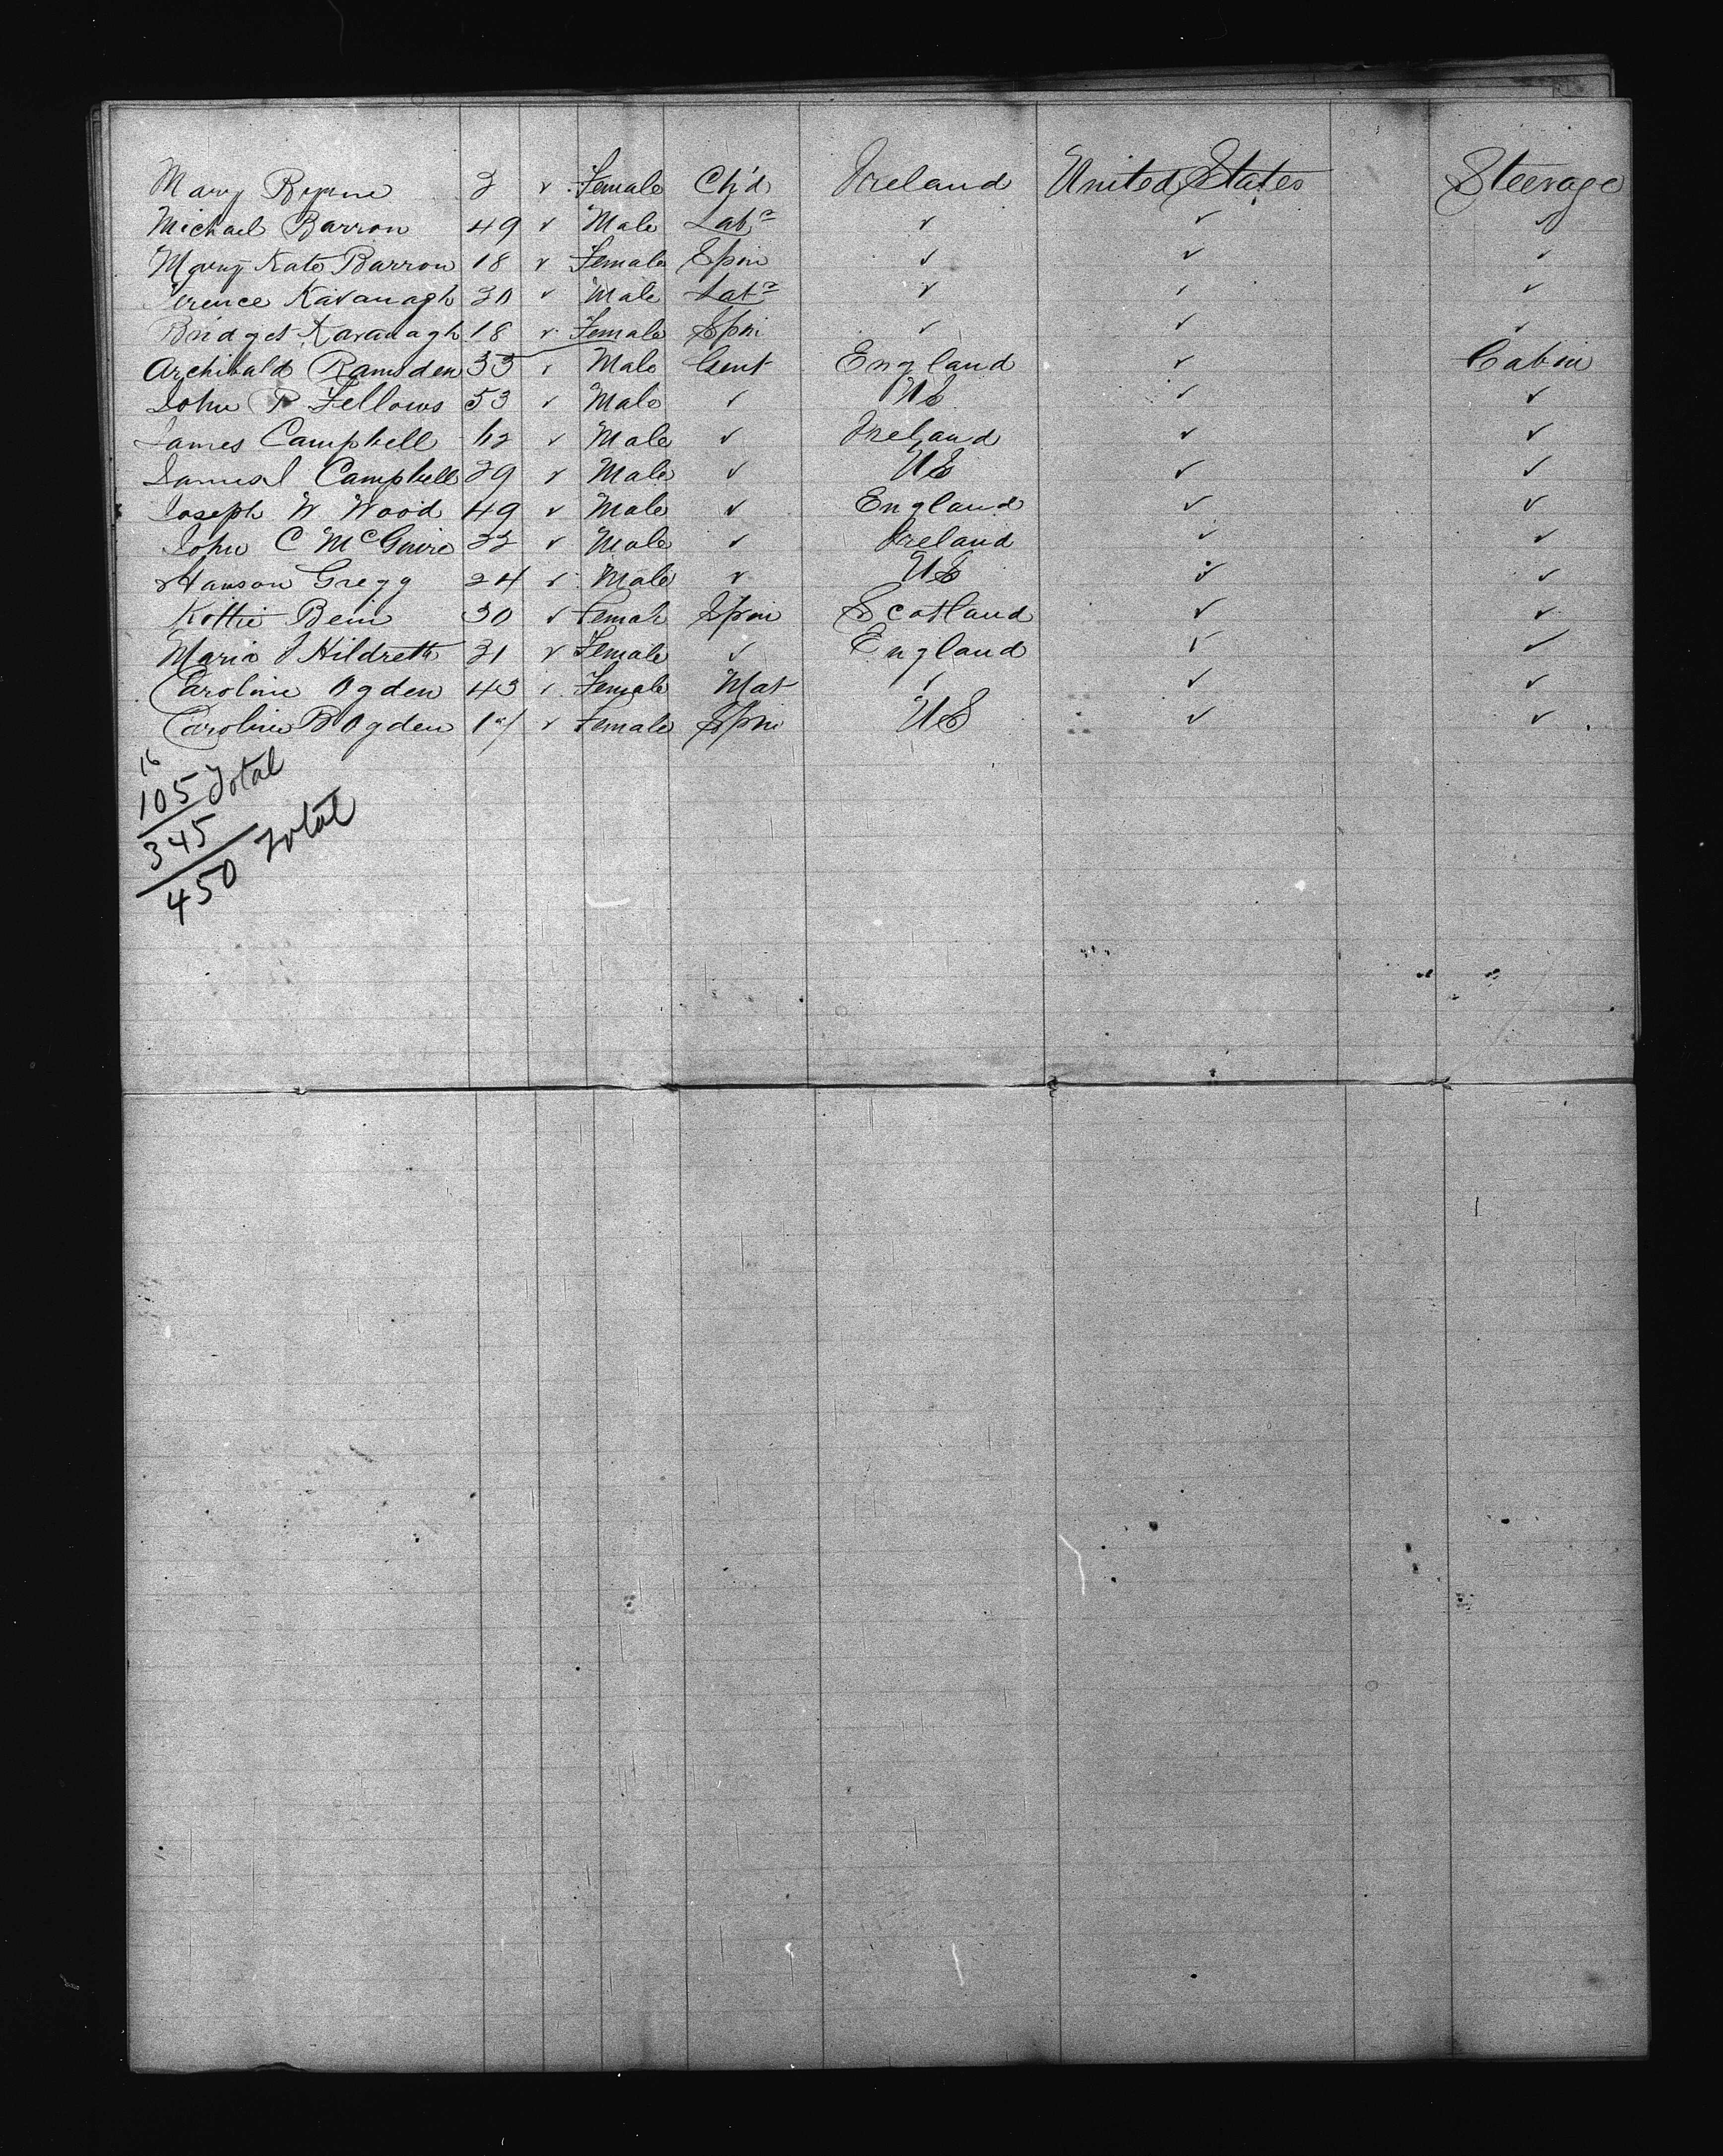 Mary Byrne 3 ✓ Female Ch'd Ireland United States Steerage
Michael Barron 49 ✓ Male Labr ✓ ✓ ✓
Mary Kate Barron 18 ✓ Female Spin ✓ ✓ ✓
Terence Kavanagh 30 ✓ Male Labr ✓ ✓ ✓
Bridget Kavanagh 18 ✓ Female Spin ✓ ✓ ✓
Archibald Ramsden 33 ✓ Male Gent England ✓ Cabin
John P Fellows 53 ✓ Male ✓ US ✓ ✓
James Campbell 62 ✓ Male ✓ Ireland ✓ ✓
Campbell 29 ✓ Male ✓ US ✓ ✓
Joseph W Wood 49 ✓ Male ✓ England ✓ ✓
John C McGuire 33 ✓ Male ✓ Ireland ✓ ✓
Hanson Gregg 24 ✓ Male ✓ US ✓ ✓
Kottie Bein 30 ✓ Female Spin Scotland ✓ ✓
Maria J Hildreth 31 ✓ Female ✓ England ✓ ✓
Caroline Ogden 43 ✓ Female Mat ✓ ✓ ✓
Caroline B Ogden ✓ Female Spin US ✓ ✓
16
105 Total
345
450 Total